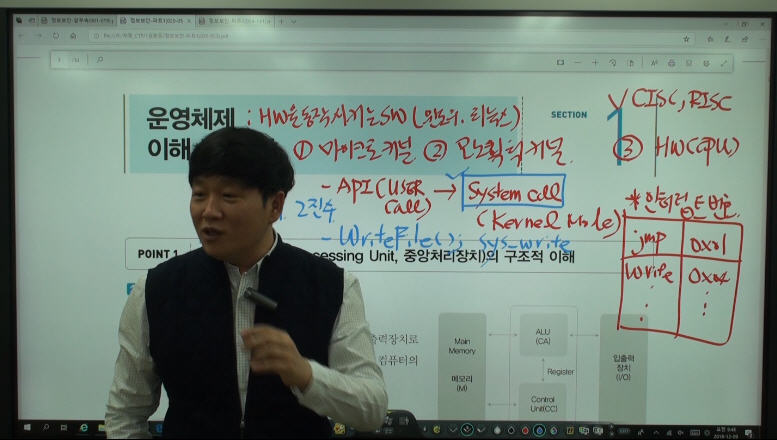 운영체제 : HW을 동작시키는 SW(윈도우, 리눅스)
이해
① 마이크로커널 ② 모노리틱 커널
SECTION 1
CISC, RISC
③ HW(CPU)
- API(USER call) → System call
(Kernel Mode)
2진수
- WriteFile(); sys_write
*인터럽트 번호
jmp 0x01
write 0x04
POINT 1
essing Unit, 중앙처리장치)의 구조적 이해
출력장치로
컴퓨터의
Main Memory
메모리 (M)
ALU (CA)
Register
Control Unit(CC)
입출력 장치 (I/O)
오전 9:46